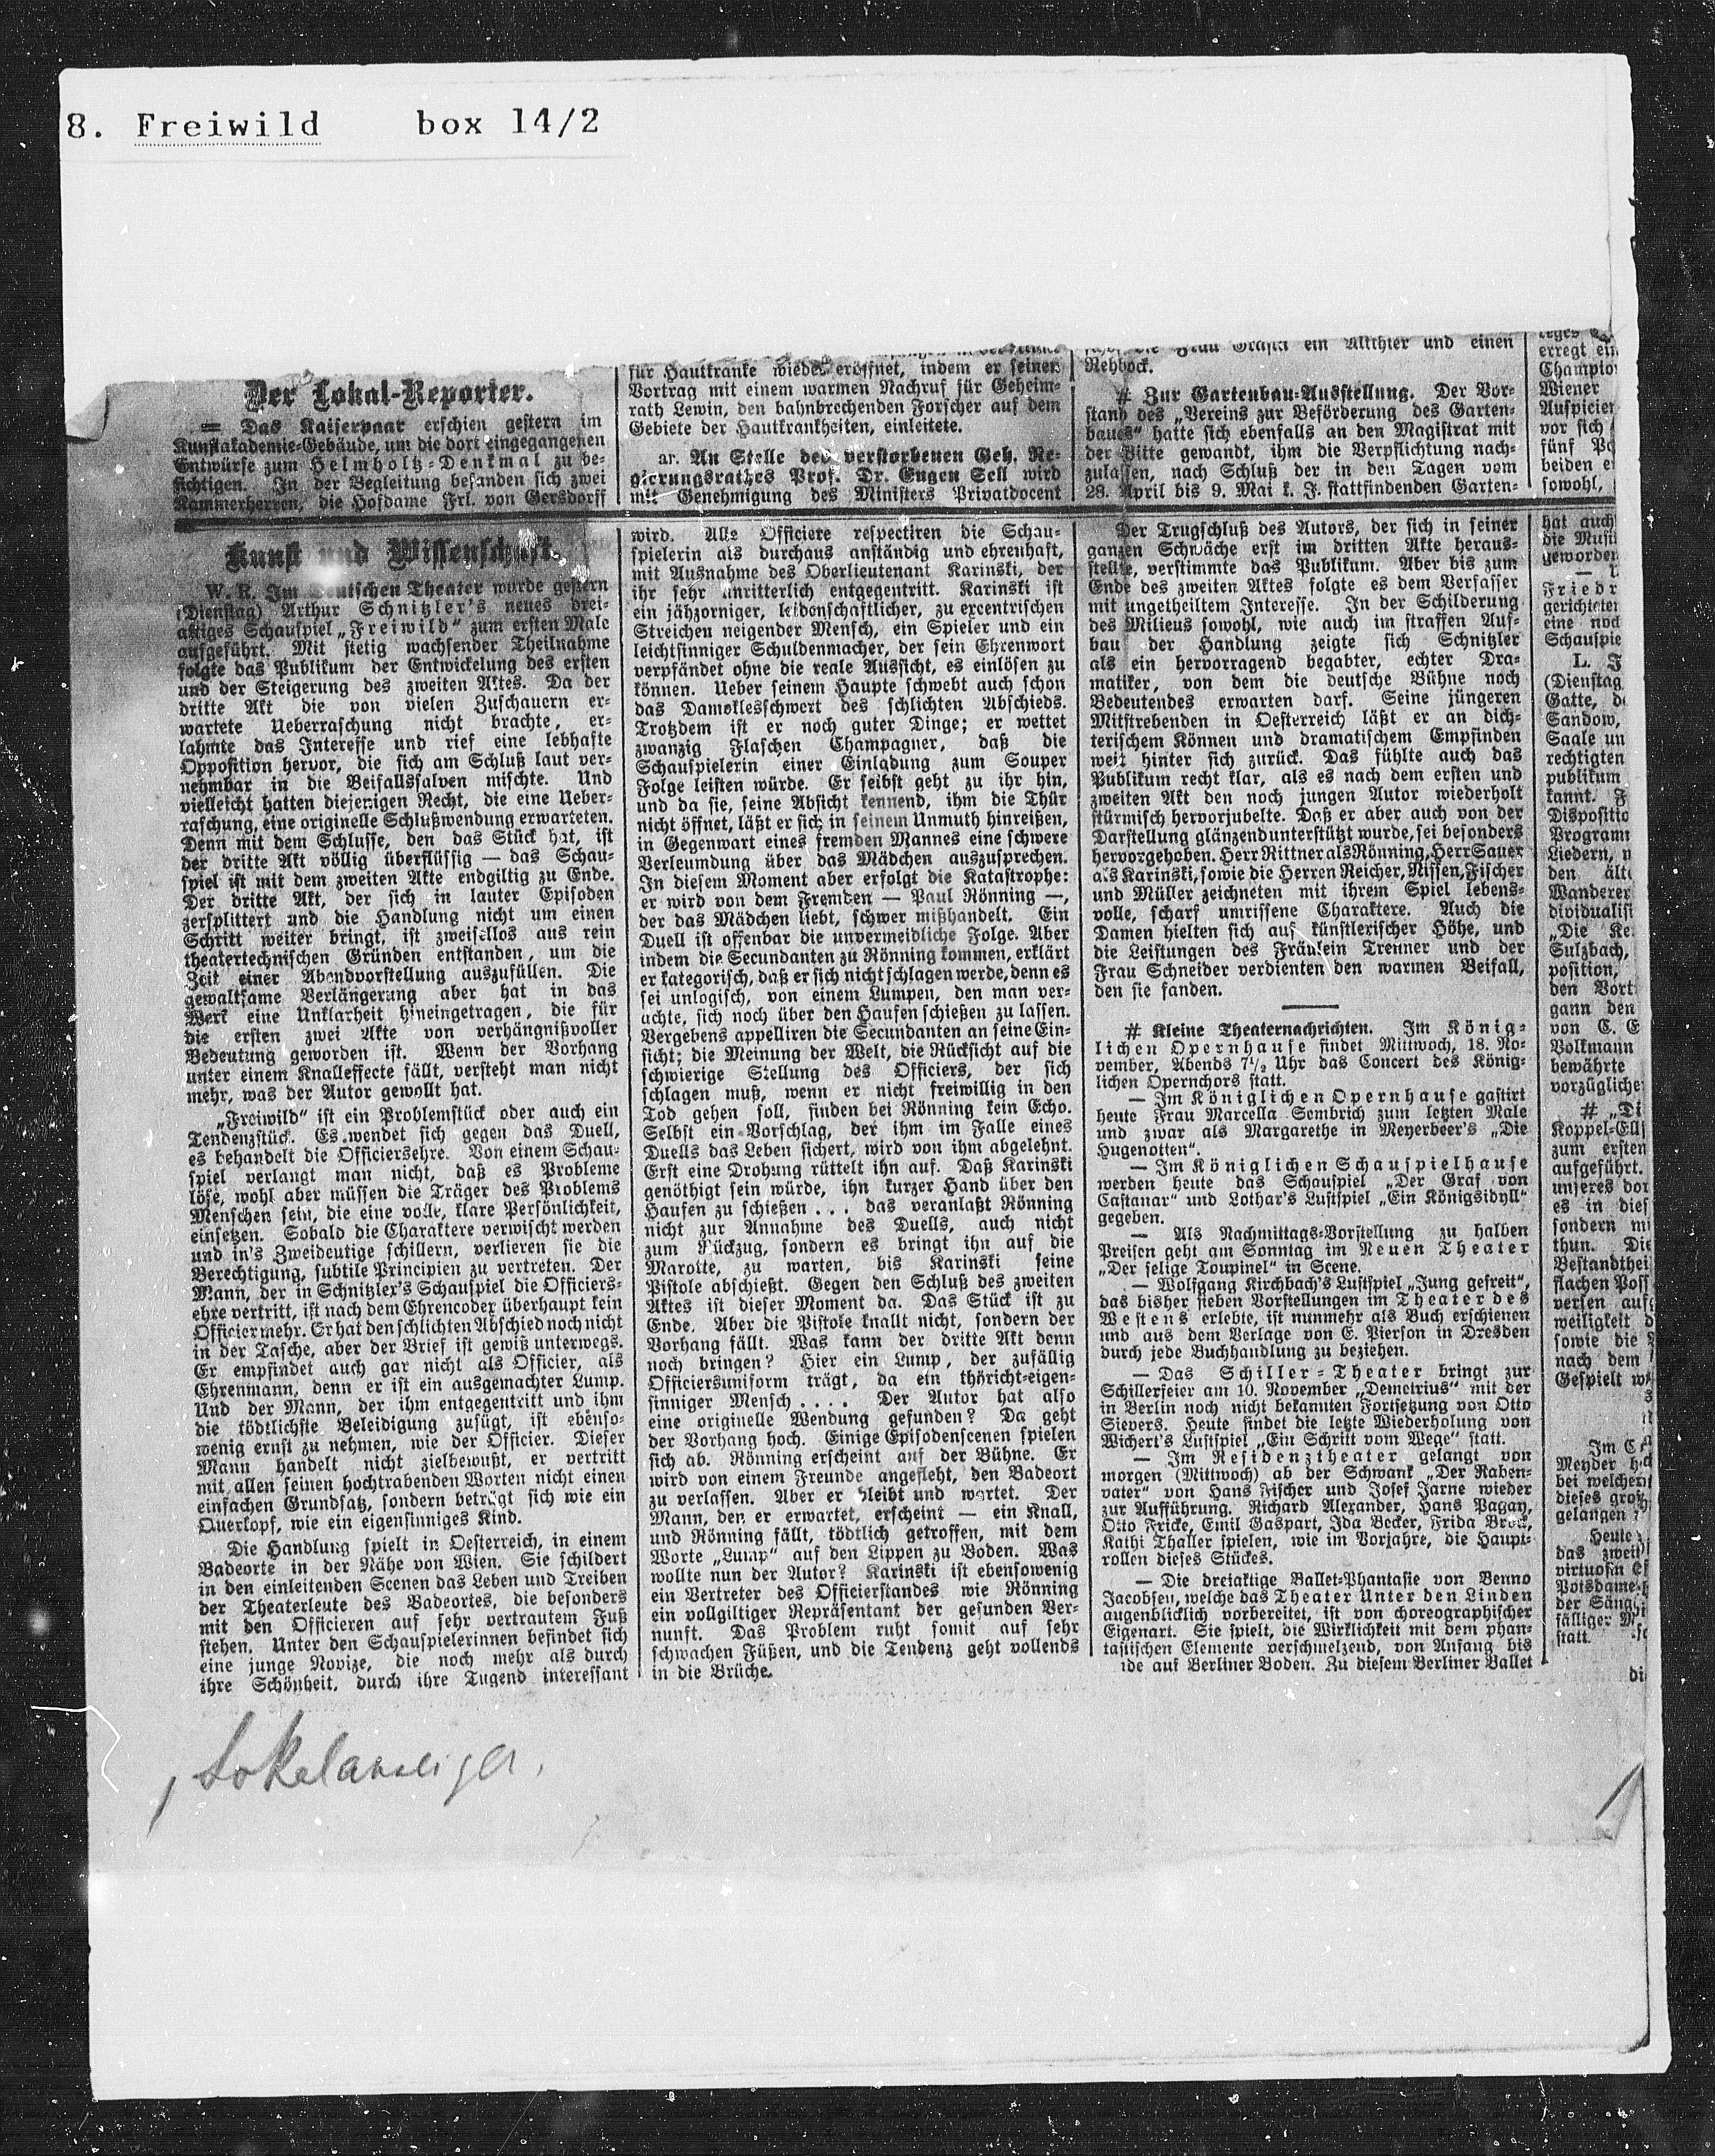 8. Freiwild box 14/2
Der Lokal-Reporter.
= Das Kaiserpaar erschien gestern im
Kunstakademie-Gebäude, um die dort eingegangenen
Entwürfe zum Helmholtz-Denkmal zu be-
sichtigen. In der Begleitung befanden sich zwei
Kammerherren, die Hofdame Frl. von Gersdorff
für Hautkranke wieder eröffnet, indem er seinen
Vortrag mit einem warmen Nachruf für Geheim-
rath Lewin, den bahnbrechenden Forscher auf dem
Gebiete der Hautkrankheiten, einleitete.
ar. An Stelle des verstorbenen Geh. Re-
gierungsrathes Prof. Dr. Eugen Sell wird
mit Genehmigung des Ministers Privatdocent
ein Altthier und einen
Rehbock.
# Zur Gartenbau-Ausstellung. Der Vor-
stand des „Vereins zur Beförderung des Garten-
baues“ hatte sich ebenfalls an den Magistrat mit
der Bitte gewandt, ihm die Verpflichtung nach-
zulassen, nach Schluß der in den Tagen vom
28. April bis 9. Mai k. J. stattfindenden Garten-
erregt
Champion
Wiener
Auspicien
vor sich
fünf
beiden
sowohl,
Kunst und Wissenschaft.
W. R. Im Deutschen Theater wurde gestern
(Dienstag) Arthur Schnitzler's neues drei-
aktiges Schauspiel „Freiwild“ zum ersten Male
aufgeführt. Mit stetig wachsender Theilnahme
folgte das Publikum der Entwickelung des ersten
und der Steigerung des zweiten Aktes. Da der
dritte Akt die von vielen Zuschauern er-
wartete Ueberraschung nicht brachte, er-
lahmte das Interesse und rief eine lebhafte
Opposition hervor, die sich am Schluß laut ver-
nehmbar in die Beifallssalven mischte. Und
vielleicht hatten diejenigen Recht, die eine Ueber-
raschung, eine originelle Schlußwendung erwarteten.
Denn mit dem Schlusse, den das Stück hat, ist
der dritte Akt völlig überflüssig — das Schau-
spiel ist mit dem zweiten Akte endgiltig zu Ende.
Der dritte Akt, der sich in lauter Episoden
zersplittert und die Handlung nicht um einen
Schritt weiter bringt, ist zweifellos aus rein
theatertechnischen Gründen entstanden, um die
Zeit einer Abendvorstellung auszufüllen. Die
gewaltsame Verlängerung aber hat in das
Werk eine Unklarheit hineingetragen, die für
die ersten zwei Akte von verhängnißvoller
Bedeutung geworden ist. Wenn der Vorhang
unter einem Knalleffecte fällt, versteht man nicht
mehr, was der Autor gewollt hat.
„Freiwild“ ist ein Problemstück oder auch ein
Tendenzstück. Es wendet sich gegen das Duell,
es behandelt die Officiersehre. Von einem Schau-
spiel verlangt man nicht, daß es Probleme
löse, wohl aber müssen die Träger des Problems
Menschen sein, die eine volle, klare Persönlichkeit,
einsetzen. Sobald die Charaktere verwischt werden
und in's Zweideutige schillern, verlieren sie die
Berechtigung, subtile Principien zu vertreten. Der
Mann, der in Schnitzler's Schauspiel die Officiers-
ehre vertritt, ist nach dem Ehrencodex überhaupt kein
Officier mehr. Er hat den schlichten Abschied noch nicht
in der Tasche, aber der Brief ist gewiß unterwegs.
Er empfindet auch gar nicht als Officier, als
Ehrenmann, denn er ist ein ausgemachter Lump.
Und der Mann, der ihm entgegentritt und ihm
die tödtlichste Beleidigung zufügt, ist ebenso-
wenig ernst zu nehmen, wie der Officier. Dieser
Mann handelt nicht zielbewußt, er vertritt
mit allen seinen hochtrabenden Worten nicht einen
einfachen Grundsatz, sondern beträgt sich wie ein
Querkopf, wie ein eigensinniges Kind.
Die Handlung spielt in Oesterreich, in einem
Badeorte in der Nähe von Wien. Sie schildert
in den einleitenden Scenen das Leben und Treiben
der Theaterleute des Badeortes, die besonders
mit den Officieren auf sehr vertrautem Fuß
stehen. Unter den Schauspielerinnen befindet sich
eine junge Novize, die noch mehr als durch
ihre Schönheit, durch ihre Tugend interessant
wird. Alle Officiere respectiren die Schau-
spielerin als durchaus anständig und ehrenhaft,
mit Ausnahme des Oberlieutenant Karinski, der
ihr sehr unritterlich entgegentritt. Karinski ist
ein jähzorniger, leidenschaftlicher, zu excentrischen
Streichen neigender Mensch, ein Spieler und ein
leichtsinniger Schuldenmacher, der sein Ehrenwort
verpfändet ohne die reale Aussicht, es einlösen zu
können. Ueber seinem Haupte schwebt auch schon
das Damoklesschwert des schlichten Abschieds.
Trotzdem ist er noch guter Dinge; er wettet
zwanzig Flaschen Champagner, daß die
Schauspielerin einer Einladung zum Souper
Folge leisten würde. Er selbst geht zu ihr hin,
und da sie, seine Absicht kennend, ihm die Thür
nicht öffnet, läßt er sich in seinem Unmuth hinreißen,
in Gegenwart eines fremden Mannes eine schwere
Verleumdung über das Mädchen auszusprechen.
In diesem Moment aber erfolgt die Katastrophe:
er wird von dem Fremden — Paul Rönning —,
der das Mädchen liebt, schwer mißhandelt. Ein
Duell ist offenbar die unvermeidliche Folge. Aber
indem die Secundanten zu Rönning kommen, erklärt
er kategorisch, daß er sich nicht schlagen werde, denn es
sei unlogisch, von einem Lumpen, den man ver-
achte, sich noch über den Haufen schießen zu lassen.
Vergebens appelliren die Secundanten an seine Ein-
sicht; die Meinung der Welt, die Rücksicht auf die
schwierige Stellung des Officiers, der sich
schlagen muß, wenn er nicht freiwillig in den
Tod gehen soll, finden bei Rönning kein Echo.
Selbst ein Vorschlag, der ihm im Falle eines
Duells das Leben sichert, wird von ihm abgelehnt.
Erst eine Drohung rüttelt ihn auf. Daß Karinski
genöthigt sein würde, ihn kurzer Hand über den
Haufen zu schießen . . . das veranlaßt Rönning
nicht zur Annahme des Duells, auch nicht
zum Rückzug, sondern es bringt ihn auf die
Marotte, zu warten, bis Karinski seine
Pistole abschießt. Gegen den Schluß des zweiten
Aktes ist dieser Moment da. Das Stück ist zu
Ende. Aber die Pistole knallt nicht, sondern der
Vorhang fällt. Was kann der dritte Akt denn
noch bringen? Hier ein Lump, der zufällig
Officiersuniform trägt, da ein thöricht-eigen-
sinniger Mensch . . . . Der Autor hat also
eine originelle Wendung gefunden? Da geht
der Vorhang hoch. Einige Episodenscenen spielen
sich ab. Rönning erscheint auf der Bühne. Er
wird von einem Freunde angefleht, den Badeort
zu verlassen. Aber er bleibt und wartet. Der
Mann, den er erwartet, erscheint — ein Knall,
und Rönning fällt, tödtlich getroffen, mit dem
Worte „Lump“ auf den Lippen zu Boden. Was
wollte nun der Autor? Karinski ist ebensowenig
ein Vertreter des Officierstandes wie Rönning
ein vollgiltiger Repräsentant der gesunden Ver-
nunft. Das Problem ruht somit auf sehr
schwachen Füßen, und die Tendenz geht vollends
in die Brüche.
Der Trugschluß des Autors, der sich in seiner
ganzen Schwäche erst im dritten Akte heraus-
stellte, verstimmte das Publikum. Aber bis zum
Ende des zweiten Aktes folgte es dem Verfasser
mit ungetheiltem Interesse. In der Schilderung
des Milieus sowohl, wie auch im straffen Auf-
bau der Handlung zeigte sich Schnitzler
als ein hervorragend begabter, echter Dra-
matiker, von dem die deutsche Bühne noch
Bedeutendes erwarten darf. Seine jüngeren
Mitstrebenden in Oesterreich läßt er an dich-
terischem Können und dramatischem Empfinden
weit hinter sich zurück. Das fühlte auch das
Publikum recht klar, als es nach dem ersten und
zweiten Akt den noch jungen Autor wiederholt
stürmisch hervorjubelte. Daß er aber auch von der
Darstellung glänzend unterstützt wurde, sei besonders
hervorgehoben. Herr Rittner als Rönning, Herr Sauer
als Karinski, sowie die Herren Reicher, Nissen, Fischer
und Müller zeichneten mit ihrem Spiel lebens-
volle, scharf umrissene Charaktere. Auch die
Damen hielten sich auf künstlerischer Höhe, und
die Leistungen des Fräulein Trenner und der
Frau Schneider verdienten den warmen Beifall,
den sie fanden.
# Kleine Theaternachrichten. Im König-
lichen Opernhause findet Mittwoch, 18. No-
vember, Abends 7½ Uhr das Concert des König-
lichen Opernchors statt.
— Im Königlichen Opernhause gastirt
heute Frau Marcella Sembrich zum letzten Male
und zwar als Margarethe in Meyerbeer's „Die
Hugenotten“.
— Im Königlichen Schauspielhause
werden heute das Schauspiel „Der Graf von
Castanar“ und Lothar's Lustspiel „Ein Königsidyll“
gegeben.
— Als Nachmittags-Vorstellung zu halben
Preisen geht am Sonntag im Neuen Theater
„Der selige Toupinel“ in Scene.
— Wolfgang Kirchbach's Lustspiel „Jung gefreit“,
das bisher sieben Vorstellungen im Theater des
Westens erlebte, ist nunmehr als Buch erschienen
und aus dem Verlage von E. Pierson in Dresden
durch jede Buchhandlung zu beziehen.
— Das Schiller-Theater bringt zur
Schillerfeier am 10. November „Demetrius“ mit der
in Berlin noch nicht bekannten Fortsetzung von Otto
Sievers. Heute findet die letzte Wiederholung von
Wichert's Lustspiel „Ein Schritt vom Wege“ statt.
— Im Residenztheater gelangt von
morgen (Mittwoch) ab der Schwank „Der Raben-
vater“ von Hans Fischer und Josef Jarne wieder
zur Aufführung. Richard Alexander, Hans Pagay,
Otto Fricke, Emil Gaspart, Ida Becker, Frida Brock,
Kathi Thaller spielen, wie im Vorjahre, die Haupt-
rollen dieses Stückes.
— Die dreiaktige Ballet-Phantasie von Benno
Jacobsen, welche das Theater Unter den Linden
augenblicklich vorbereitet, ist von choreographischer
Eigenart. Sie spielt, die Wirklichkeit mit dem phan-
tastischen Elemente verschmelzend, von Anfang bis
auf Berliner Boden. Zu diesem Berliner Ballet
hat auch
die Musik
geworden
Friedr
gerichteten
eine noch
Schauspie
L. J
(Dienstag
Gatte, d
Sandow,
Saale un
rechtigten
publikum
kannt.
Dispositio
Programm
Liedern,
den älte
Wanderer
dividualist
„Die Ke
Sulzbach,
position,
den Vort
gann den
von C. E
Volkmann
bewährte
vorzügliche
# „Di
Koppel-Ell
zum ersten
aufgeführt.
unseres
es in dies
sondern
thun. Die
Bestandthei
flachen Poss
versen auf
weiligkeit d
sowie die
nach dem
Gespielt
Im
Meyder
bei welchen
dieses
gelangen
Heute
das zweit
virtuosin
Potsdamer
der
fälliger
statt.
di
Lokalanzeiger.